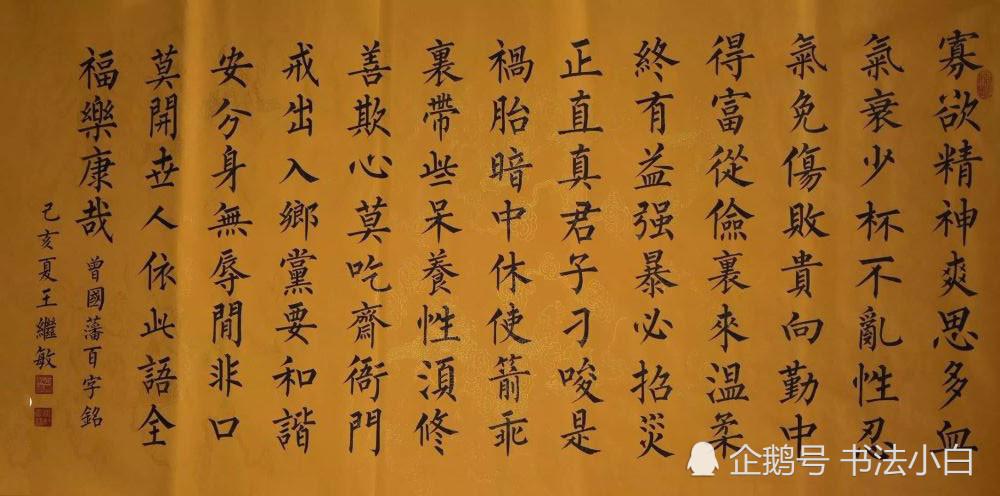 寡欲精神爽思多血
氣衰少杯不亂性忍
氣免傷敗貴向勤中
得富從儉裏來溫柔
終有益强暴必招災
正直真君子刁唆是
禍胎暗中休使箭乖
裏帶些呆養性須修
善欺心莫吃齋衙門
戒出入鄉黨要和諧
安分身無辱閒非口
莫開世人依此語全
福樂康哉
曾國藩百字銘
己亥夏王繼敏
企鹅号 书法小白